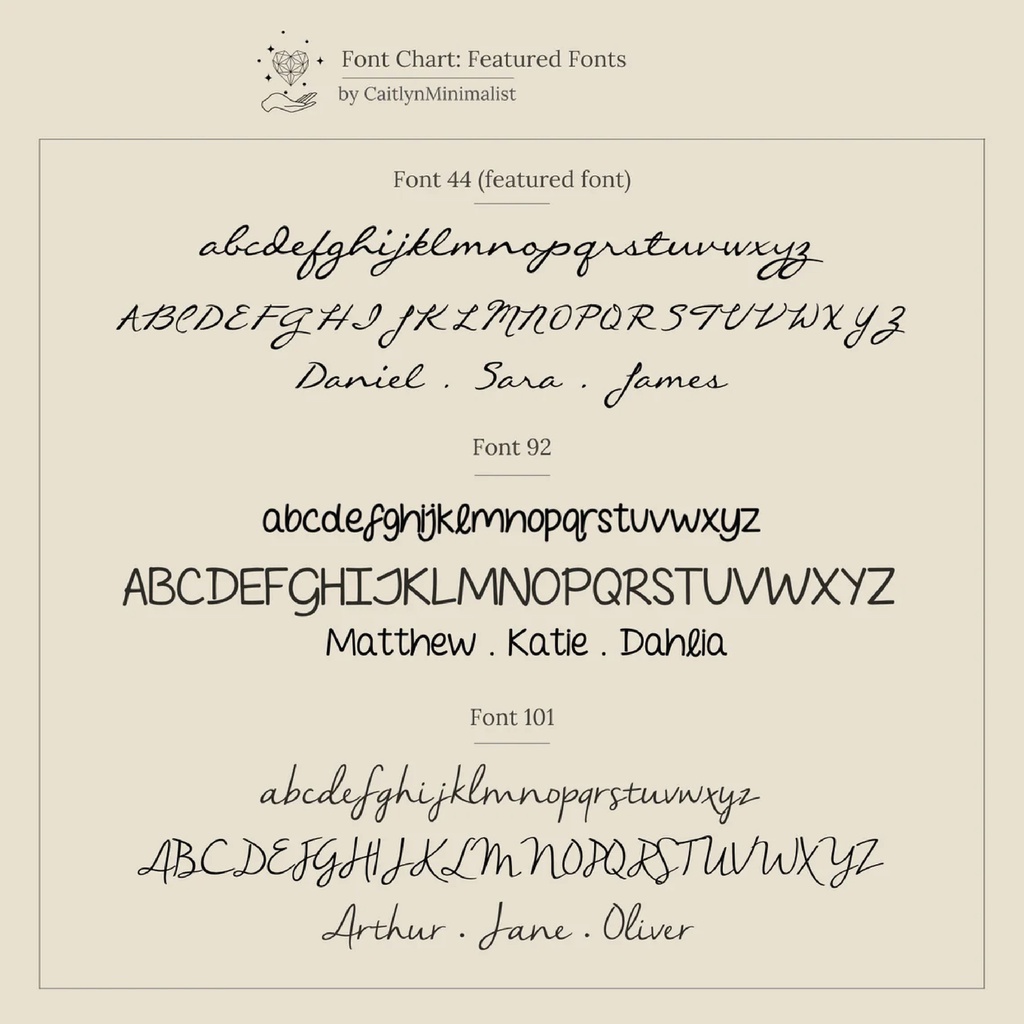 Font Chart: Featured Fonts
by CaitlynMinimalist
Font 44 (featured font)
abcdefghijklmnopqrstuvwxyz
ABCDEFGHIJKLMNOPQRSTUVWXYZ
Daniel . Sara . James
Font 92
abcdefghijklmnopqrstuvwxyz
ABCDEFGHIJKLMNOPQRSTUVWXYZ
Matthew . Katie . Dahlia
Font 101
abcdefghijklmnopqrstuvwxyz
ABCDEFGHIJKLMNOPQRSTUVWXYZ
Arthur . Jane . Oliver